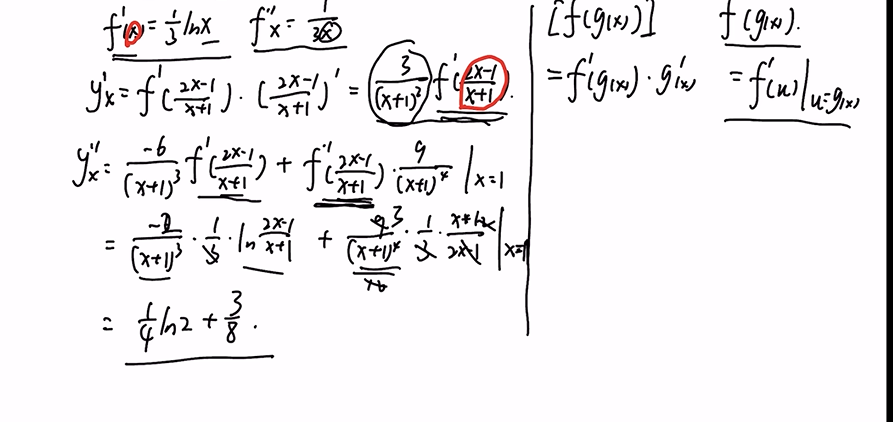 f'(x) = 1/3 lnx   f''x = 1/3x
y'x = f'((2x-1)/(x+1)) · ((2x-1)/(x+1))' = 3/(x+1)² f'((2x-1)/(x+1)).
y''x = -6/(x+1)³ f'((2x-1)/(x+1)) + f''((2x-1)/(x+1)) · 9/(x+1)⁴ |x=1
= -2/(x+1)³ · 1/3 · ln (2x-1)/(x+1) + 3/(x+1)⁴ · 1/3 · (x+1)/(2x-1) |x=1
= 1/4 ln2 + 3/8 .
[f(g(x))]'   f'(g(x)).
= f'(g(x)) · g'(x)   = f'(u)|u=g(x)